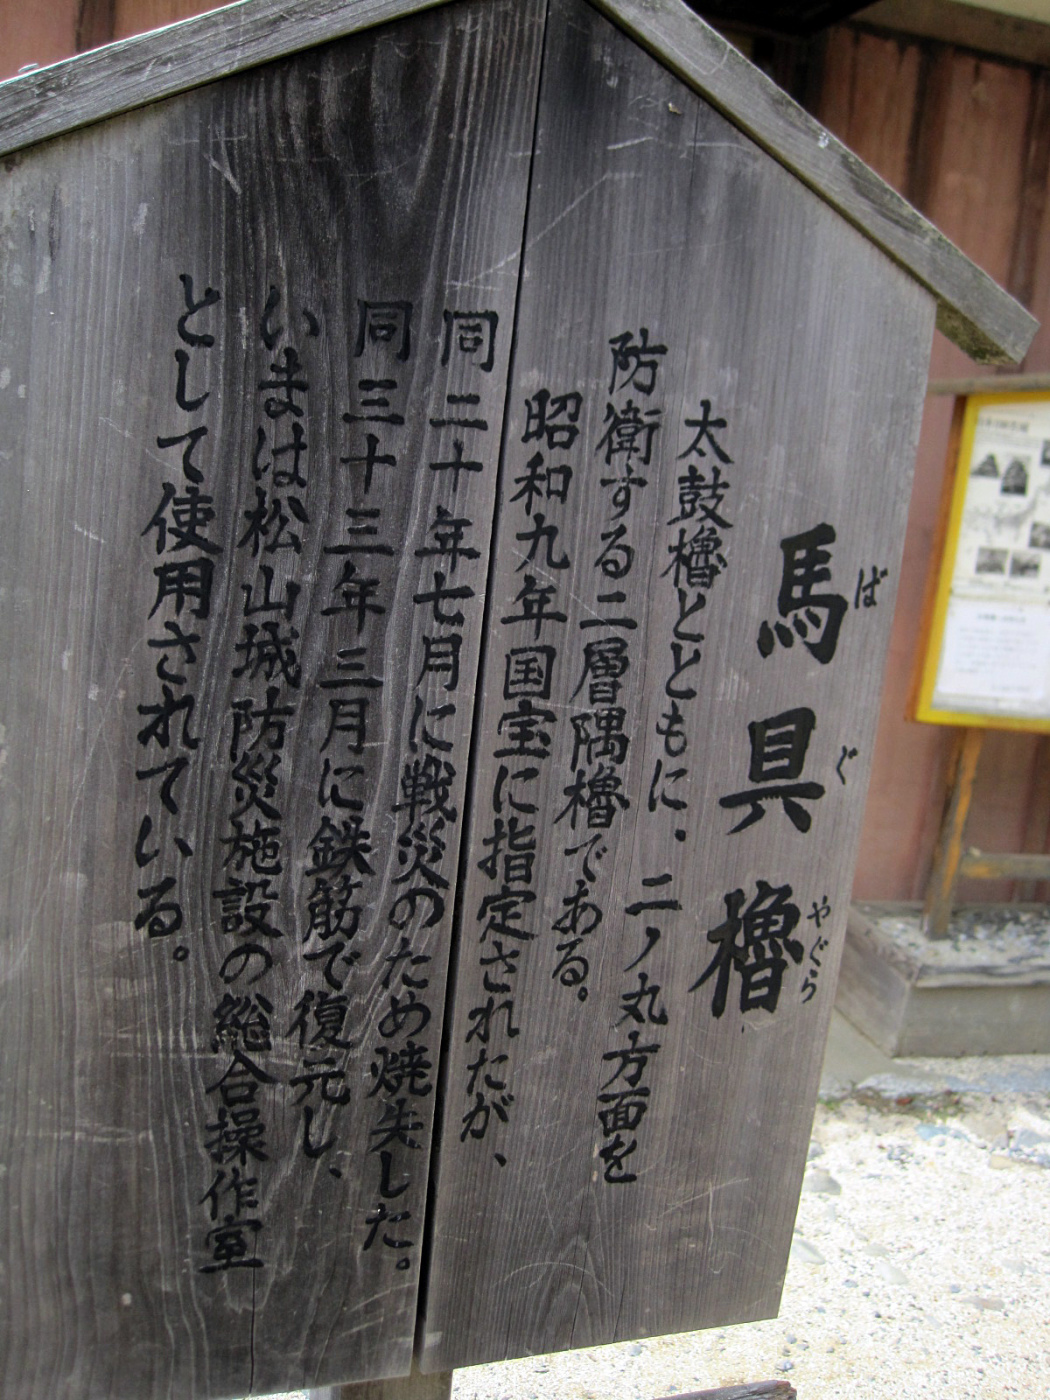 馬具櫓
ばぐやぐら
太鼓櫓とともに、二ノ丸方面を
防衛する二層隅櫓である。
昭和九年国宝に指定されたが、
同二十年七月に戦災のため焼失した。
同三十三年三月に鉄筋で復元し、
いまは松山城防災施設の総合操作室
として使用されている。